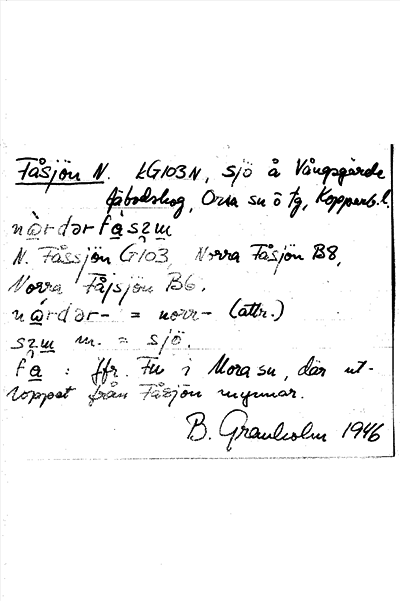 Fåsjön N. kG103N, sjö å Vångsgärde
fäbodskog, Orsa sn ö fg, Kopparb. l.
nàrdərfàszm
N. Fåssjön G103, Norra Fåsjön B8,
Norra Fåjsjön B6.
nàrdər- = norr- (attr.)
szm m. = sjö.
få : jfr. Fu i Mora sn, där ut-
loppet från Fåsjön mynnar.
B. Granholm 1946